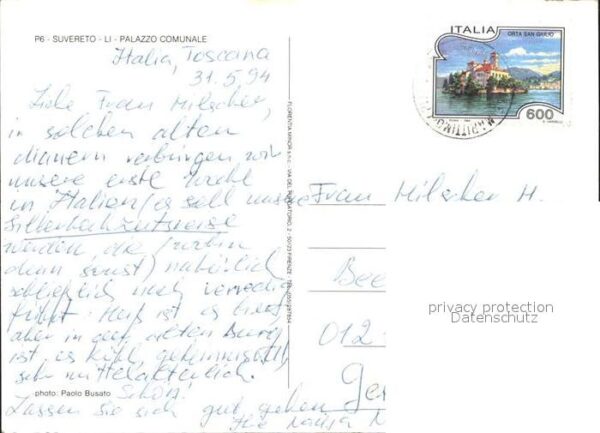 P6 - SUVERETO - LI - PALAZZO COMUNALE
Italia, Toscana
31.5.94
Liebe Frau Milscher,
in solchen alten
Mauern verbringen wir
unsere erste Nacht
in Italien (es soll unsere
Silberhochzeitsreise
werden, die (wohin
denn sonst) natürlich
schließlich nach Venedig
führt. Heiß ist es hier,
aber in der alten Burg
ist es kühl, geheimnisvoll,
sehr mittelalterlich.
Schön.
Lassen Sie sich gut gehen
Ihre
photo: Paolo Busato
FLORENTIA MINOR s.n.c. - VIA DEL PURGATORIO, 2 - 50123 FIRENZE
ITALIA
ORTA SAN GIULIO
600
Frau Milscher H.
Bee
012
Ge
privacy protection
Datenschutz